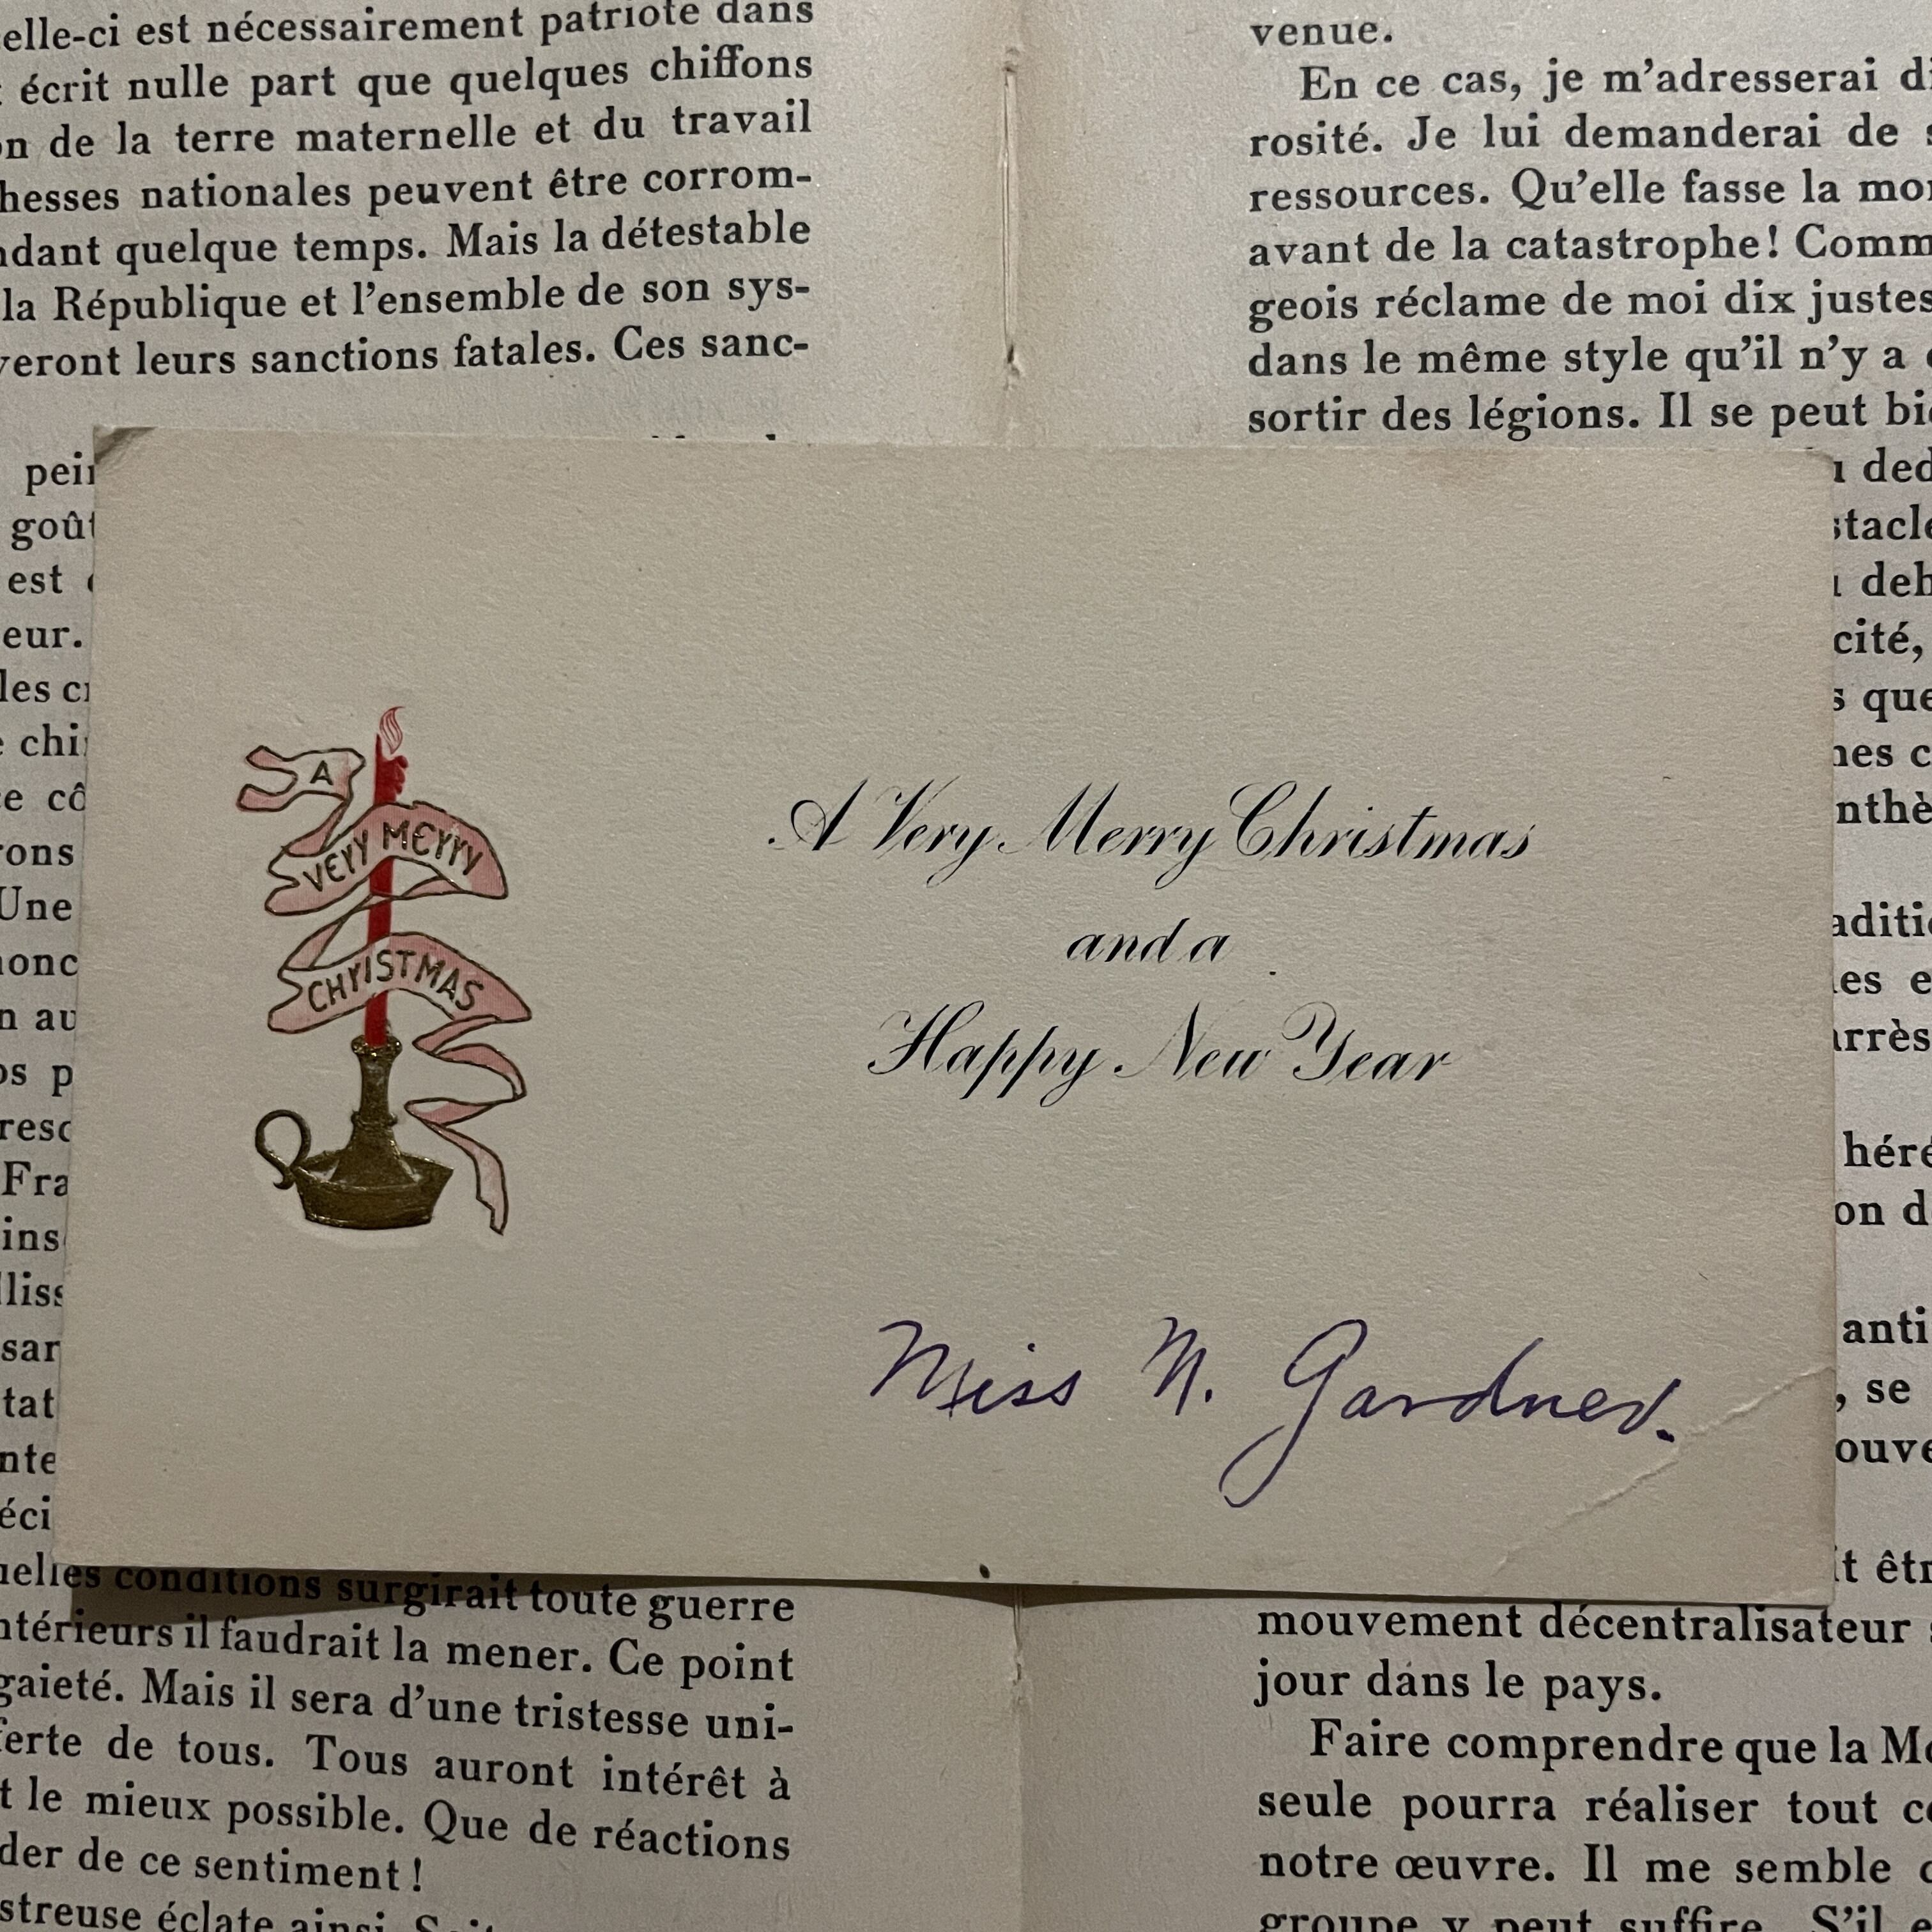 elle-ci est nécessairement patriote dans
écrit nulle part que quelques chiffons
on de la terre maternelle et du travail
hesses nationales peuvent être corrom-
ndant quelque temps. Mais la détestable
la République et l'ensemble de son sys-
veront leurs sanctions fatales. Ces sanc-
pei
goût
est
eur.
les c
chi
ce cô
rons
Une
nonc
n au
os p
resc
Fra
ins
lliss
sar
tat
nte
éci
uelles conditions surgirait toute guerre
ntérieurs il faudrait la mener. Ce point
gaieté. Mais il sera d'une tristesse uni-
ferte de tous. Tous auront intérêt à
t le mieux possible. Que de réactions
der de ce sentiment !
streuse éclate ainsi.
A
VERY MERRY
CHRISTMAS
A Very Merry Christmas
and a
Happy New Year
Miss N. Gardner.
venue.
En ce cas, je m'adresserai di
rosité. Je lui demanderai de s
ressources. Qu'elle fasse la mo
avant de la catastrophe! Comm
geois réclame de moi dix justes
dans le même style qu'il n'y a
sortir des légions. Il se peut bi
u ded
stacle
u deh
cité,
s que
mes c
nthè
aditi
les e
arrès
héré
on d
anti
, se
ouve
it êtr
mouvement décentralisateur
jour dans le pays.
Faire comprendre que la M
seule pourra réaliser tout c
notre œuvre. Il me semble
groupe y peut suffire. S'il